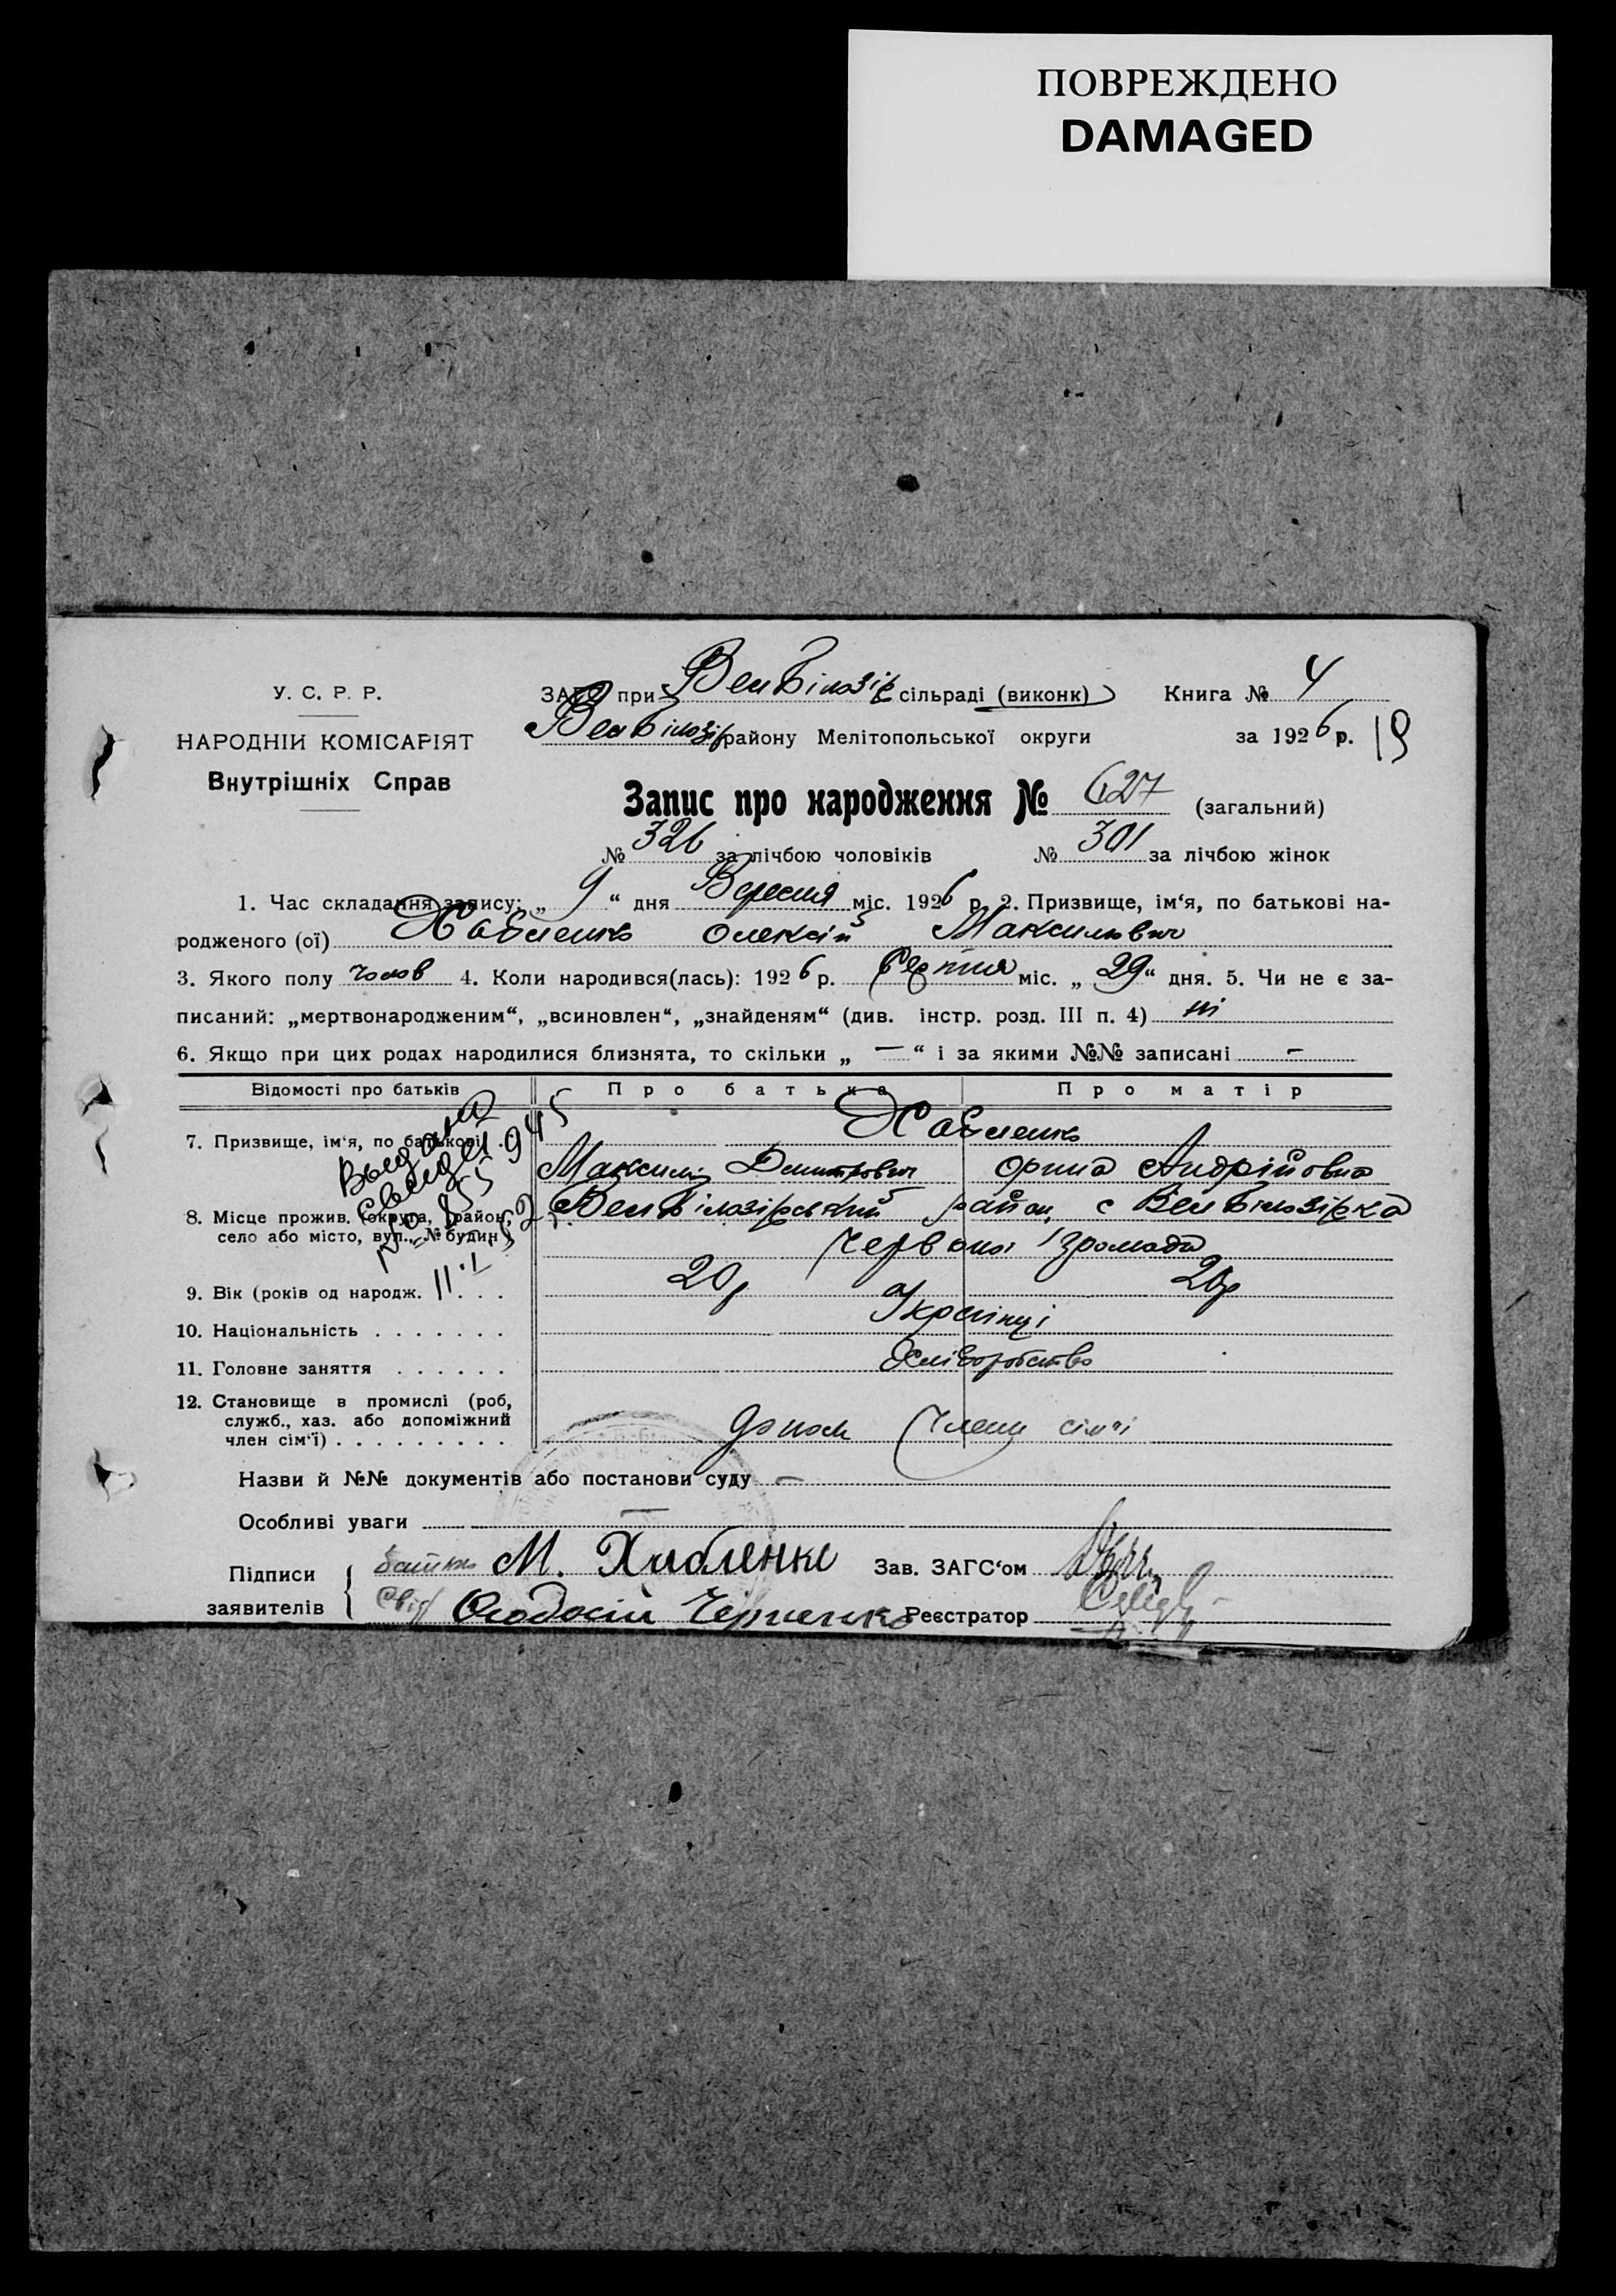 ПОВРЕЖДЕНО
DAMAGED
У. С. Р. Р.
НАРОДНІЙ КОМІСАРІЯТ
Внутрішніх Справ
ЗАГС при ВелБілозір сільраді (виконк) Книга № 4
ВелБілозір району Мелітопольської округи за 1926 р. 19
Запис про народження № 627 (загальний)
№ 326 за лічбою чоловіків № 301 за лічбою жінок
1. Час складання запису: „ 9 “ дня Вересня міс. 1926 р. 2. Призвище, ім‘я, по батькові на-
родженого (ої) Хабленко Олексій Максимович
3. Якого полу чолов 4. Коли народився(лась): 1926 р. Серпня міс. „ 29 “ дня. 5. Чи не є за-
писаний: „мертвонародженим“, „всиновлен“, „знайденям“ (див. інстр. розд. III п. 4) ні
6. Якщо при цих родах народилися близнята, то скільки „ — “ і за якими №№ записані –
Відомості про батьків Про батька Про матір
7. Призвище, ім‘я, по батькові . Хабленко
Максим Дмитрович Орина Андрійовна
8. Місце прожив. (округа, район, ВелБілозірський район, с ВелБілозірка
село або місто, вул., № будин.) Червоної громади
9. Вік (років од народж. . . . 20р 20р
10. Національність . . . . . . . Українці
11. Головне заняття . . . . . . Хліборобство
12. Становище в промислі (роб,
служб., хаз. або допоміжний
член сім‘ї) . . . . . . . . . допом члени сім'ї
Видано
свидет
№ 855945
Назви й №№ документів або постанови суду —
Особливі уваги —
Підписи батько М. Хабленко Зав. ЗАГС‘ом
заявителів свід Феодосій Черненко Реєстратор